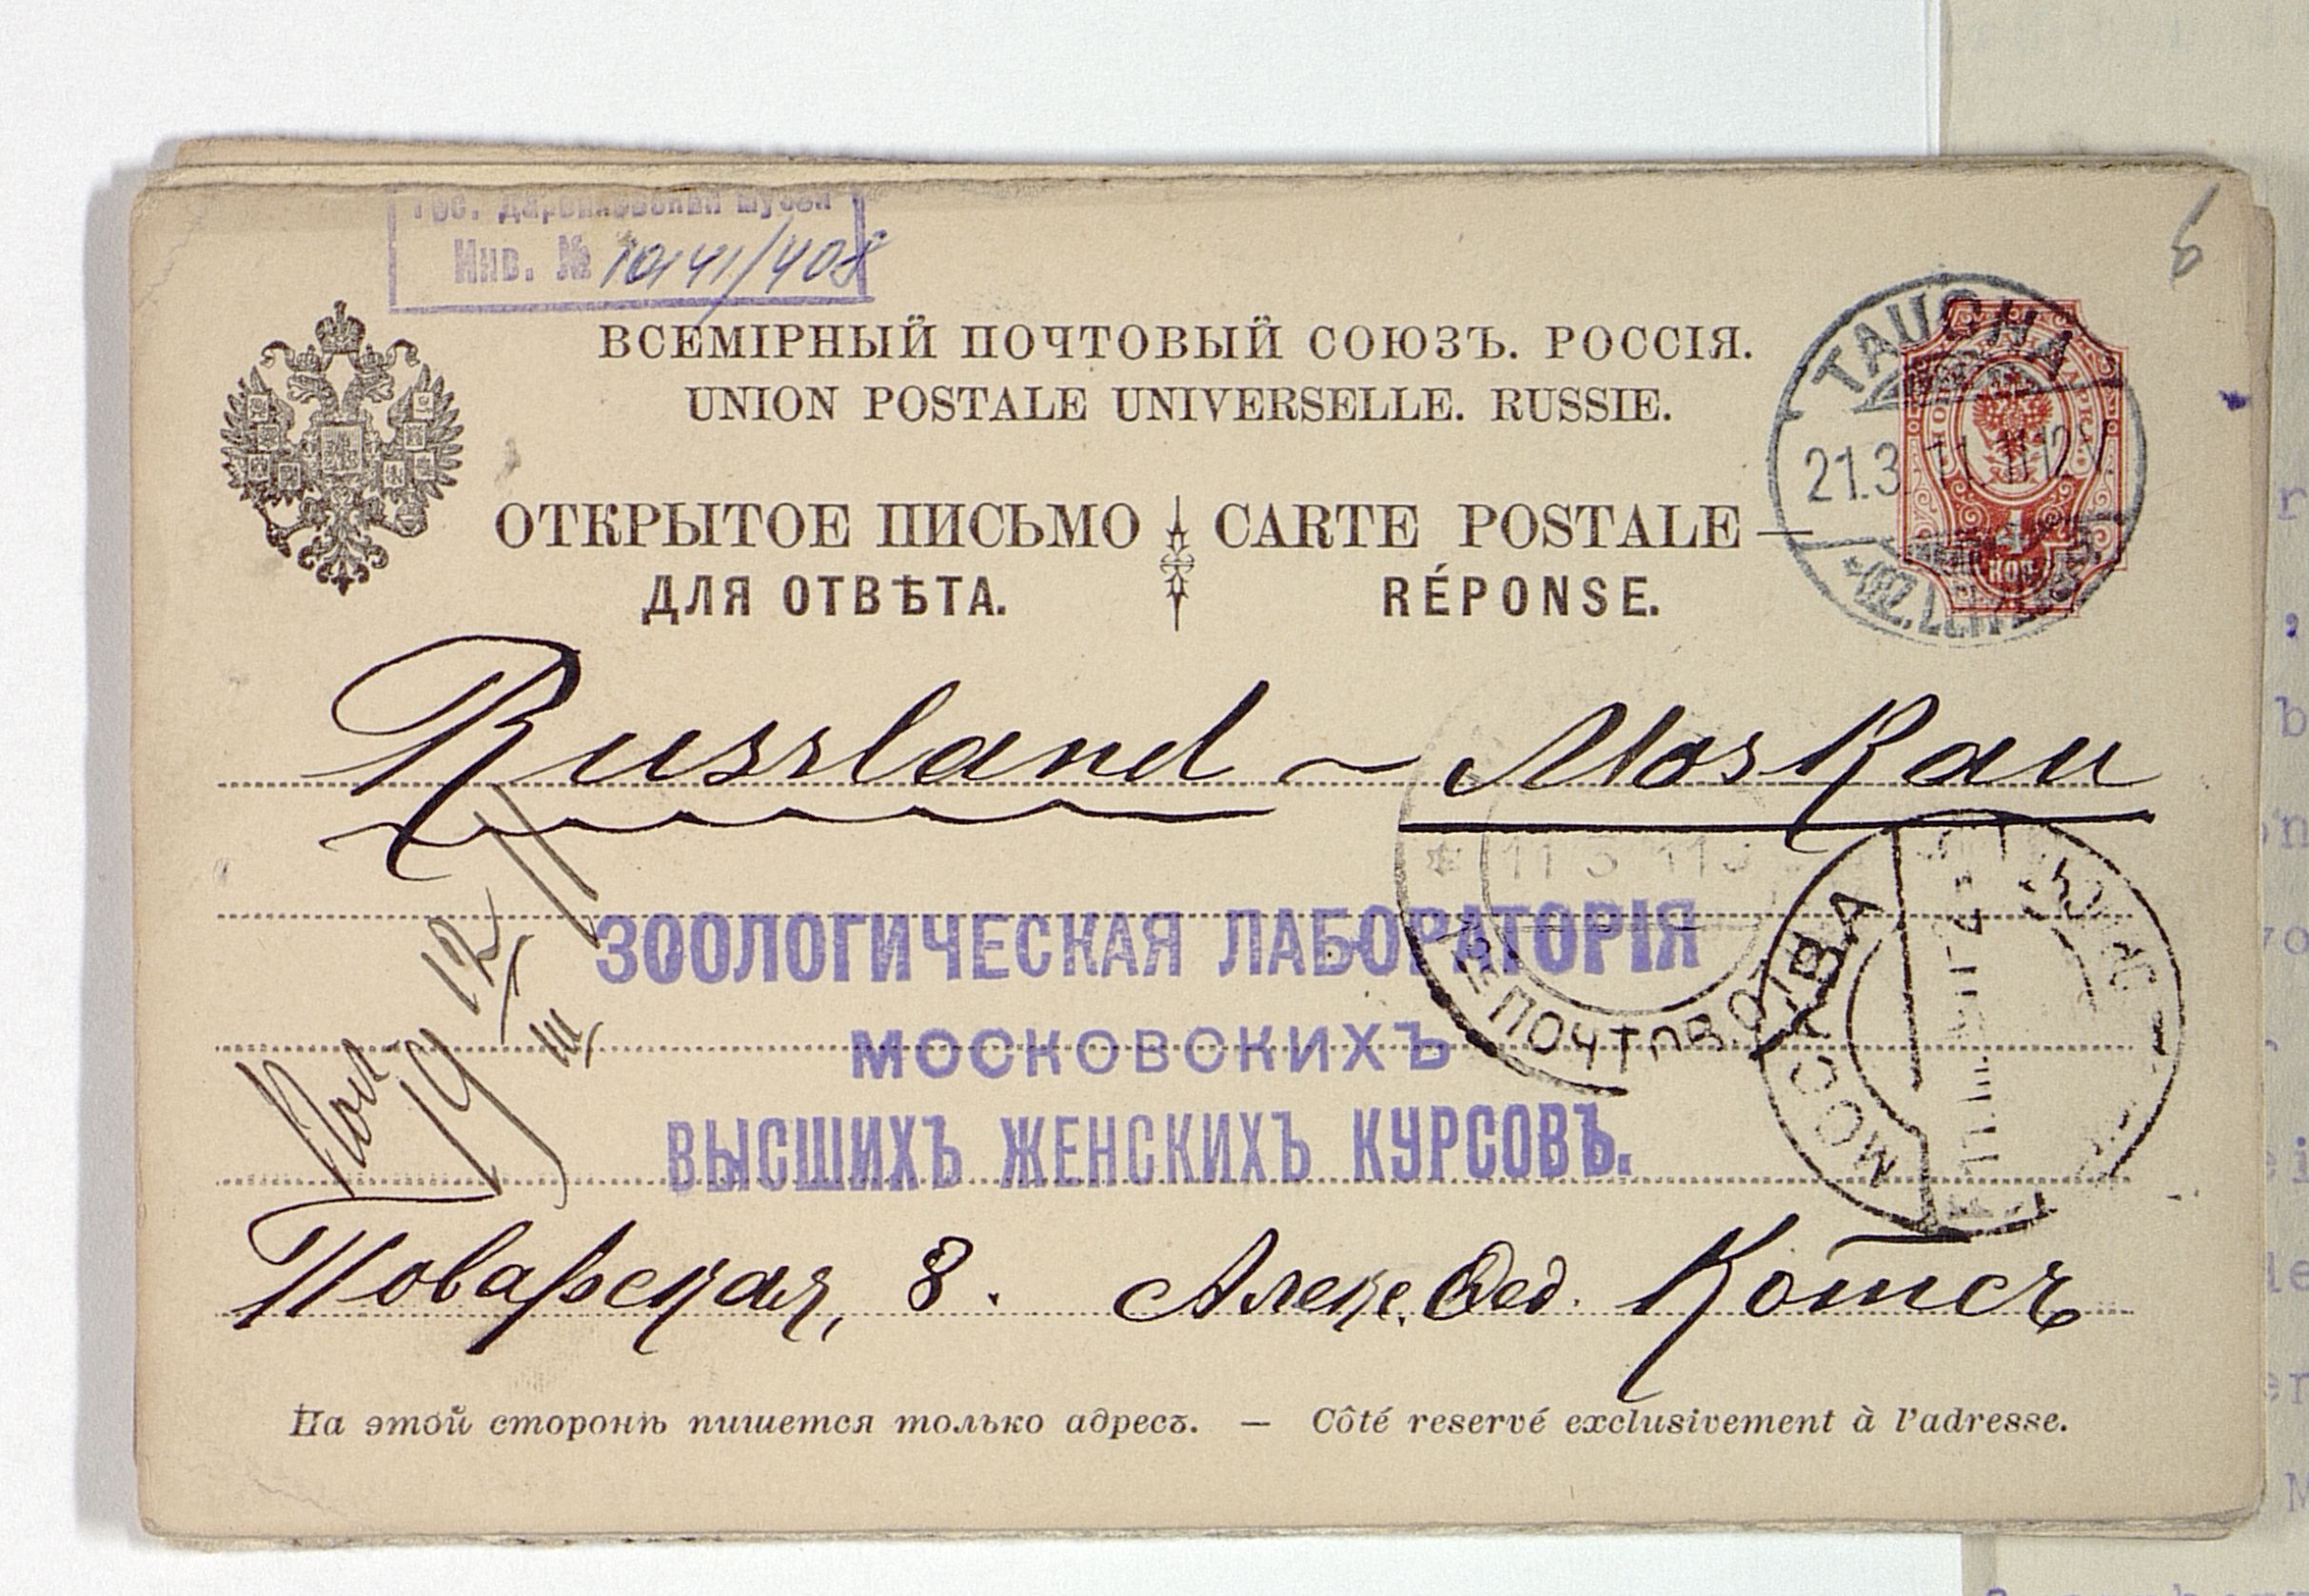 Гос. Дарвиновский музей
Инв. № 10141/408
6
ВСЕМІРНЫЙ ПОЧТОВЫЙ СОЮЗЪ. РОССІЯ.
UNION POSTALE UNIVERSELLE. RUSSIE.
TAUCHA
21.3.11.
ОТКРЫТОЕ ПИСЬМО CARTE POSTALE
ДЛЯ ОТВѢТА. RÉPONSE.
Russland ~ Moskau
ЗООЛОГИЧЕСКАЯ ЛАБОРАТОРІЯ
МОСКОВСКИХЪ
ВЫСШИХЪ ЖЕНСКИХЪ КУРСОВЪ.
МОСКВА
Пол. 19 12/III 11
Поварская, 8. Алекс. Фед. Котсъ
На этой сторонѣ пишется только адресъ. — Côté reservé exclusivement à l'adresse.